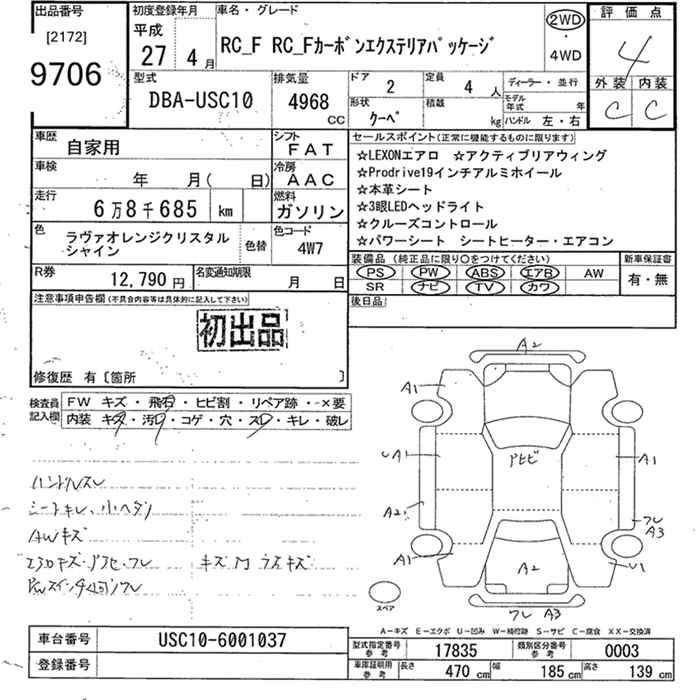 出品番号
[2172]
9706
初度登録年月
平成
27年 4月
車名・グレード
RC_F RC_Fカーボンエクステリアパッケージ
2WD
・
4WD
評価点
4
外装 内装
C C
型式
DBA-USC10
排気量
4968 CC
ドア
2
定員
4 人
形状
クーペ
積載
kg
ディーラー・並行
モデル年式 年
ハンドル 左・右
車歴
自家用
シフト
FAT
車検
年 月( 日)
冷房
AAC
走行
6万8千685 km
燃料
ガソリン
色
ラヴァオレンジクリスタル
シャイン
色替
色コード
4W7
R券
12,790 円
名変通知期限
月 日
セールスポイント(正常に機能するものに限ります)
☆LEXONエアロ ☆アクティブリアウィング
☆Prodrive19インチアルミホイール
☆本革シート
☆3眼LEDヘッドライト
☆クルーズコントロール
☆パワーシート シートヒーター・エアコン
装備品(純正品に限り○をつけてください)
PS PW ABS エアB AW
SR ナビ TV カワ
新車保証書
有・無
後日品
注意事項申告欄(不具合内容等は具体的に記入して下さい)
初出品
修復歴 有〔箇所 〕
検査員
記入欄
FW キズ・飛石・ヒビ割・リペア跡・×要
内装 キズ・汚・コゲ・穴・スレ・キレ・破レ
ハンドルスレ
シートキレ、小ヘタリ
AWキズ
キズ
A2
A1
A1
A1
A2
フレ
A3
A1
A2
U1
フレ A3
スペア
A-キズ E-エクボ U-凹み W-補修跡 S-サビ C-腐食 XX-交換済
車台番号
USC10-6001037
登録番号
型式指定番号
参考
17835
類別区分番号
参考
0003
車庫証明用
参考
長さ 470 cm 幅 185 cm 高さ 139 cm